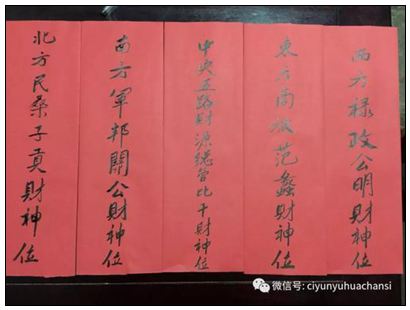 西方禄政公明財神位
東方商放范蠡財神位
中央五路財源總管比干財神位
南方軍邦關公財神位
北方民桑子貢財神位
微信号: ciyunyuhuachansi